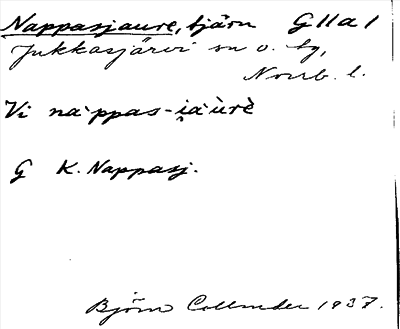 Nappasjaure, tjärn G11a1
Jukkasjärvi sn o. tg,
Norrb. l.
Vi nàppas-i̯áùrè
G K. Nappasj.
Björn Collinder 1937.